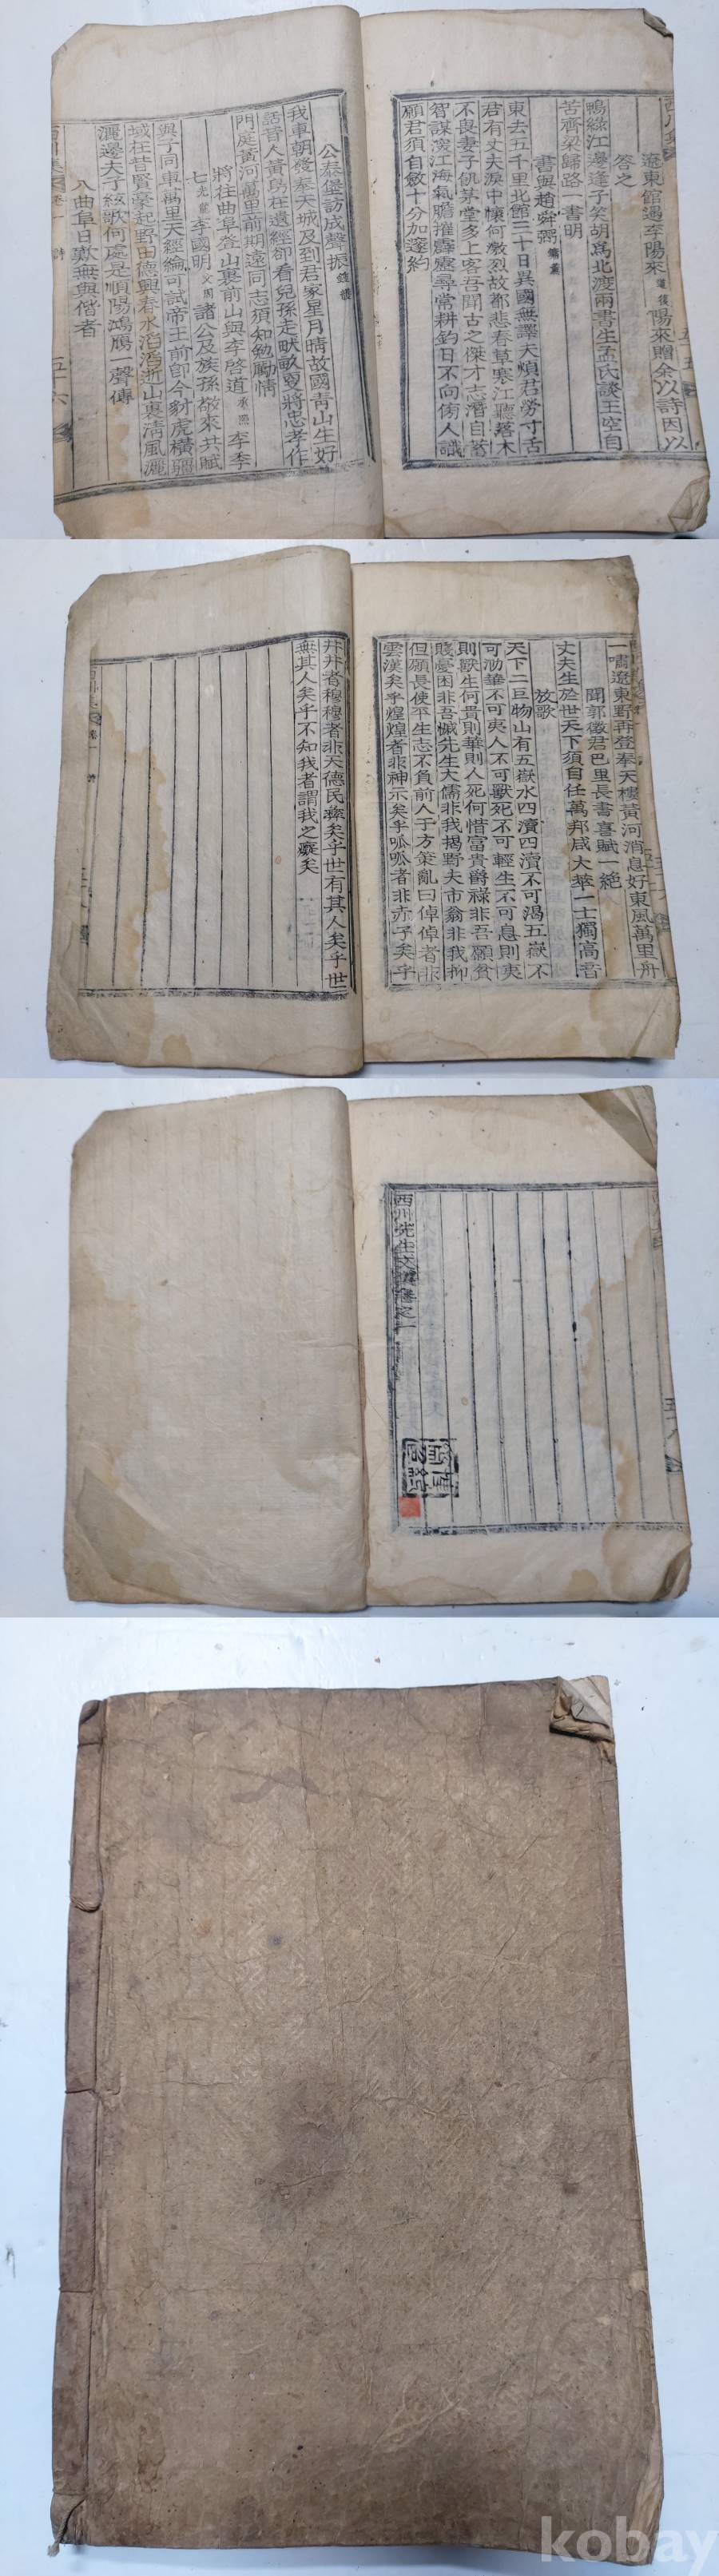 遼東館遇李陽來 陽來贈余以詩因以
答之
鴨綠江邊逢子笑胡爲北渡兩書生孟氏談王空自
苦齊梁歸路一書明
書與趙舜弼
東去五千里北館三十日異國無譯夫煩君勞寸舌
君有丈夫淚中懷何激烈故都悲春草寒江聽落木
不畏妻子飢茅堂多上客吾聞古之傑才志潛自蓄
智謀湥江海氣膽摧霹靂尋常耕釣日不向傍人識
願君須自斂十分加邃約
公泰堡訪成聲振
我車朝發奉天城及到君家星月晴故國靑山生好
話昔人黃鳥在遺經卻看兒孫走畎畝更將忠孝作
門庭黃河萬里前期遠同志須知勉勵情
將往曲阜登山裹前山與李啓道 李季
七 李國明 諸公及族孫敬來共賦
與子同車萬里天經綸可試帝王前卽今豺虎橫疆
域在昔賢豪起野田德興春水滔滔逝山裏淸風灑
灑邊大丁絃歌何處是順陽鴻鴈一聲傳
入曲阜日歎無與偕者
西川集 卷一 詩
五十六
一嘯遼東野再登奉天樓黃河消息好東風萬里舟
聞郭徵君巴里長書喜賦一絶
丈夫生於世天下須自任萬邦咸大萃一士獨高音
放歌
天下二巨物山有五嶽水四瀆四瀆不可渴五嶽不
可泐華不可夷人不可獸死不可輕生不可息則夷
則獸生何貴則華則人死何惜富貴爵祿非吾願貧
賤憂困非吾慽先生大儒非我揭野夫市翁非我抑
但願長使平生志不負前人于方策亂曰倬倬者非
雲漢矣乎煌煌者非神示矣乎呱呱者非赤子矣乎
井井者穆穆者非天德民彝矣乎世有其人矣乎世
無其人矣乎不知我者謂我之癡矣
西川先生文集卷之一
kobay